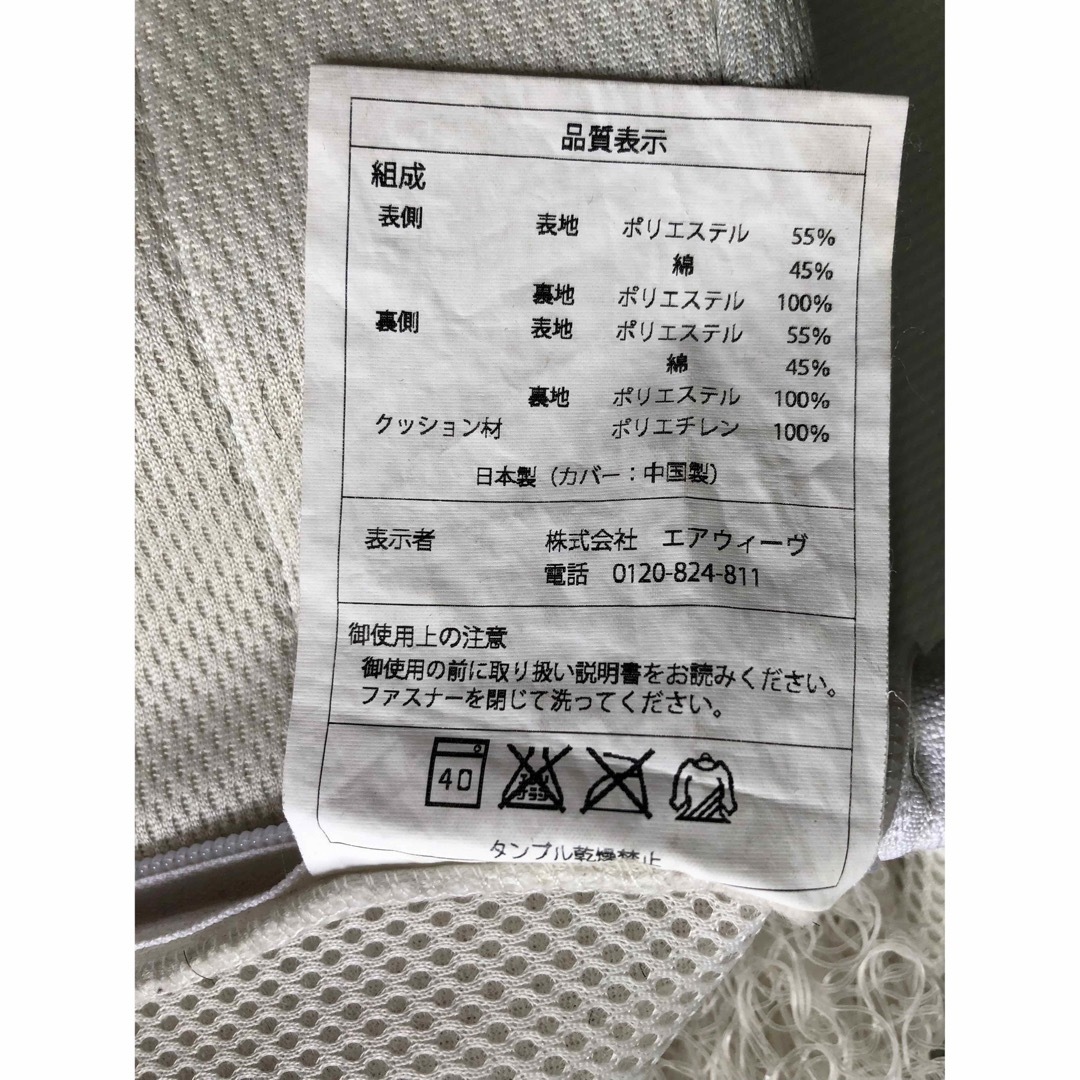 品質表示
組成
表側 表地 ポリエステル 55%
綿 45%
裏地 ポリエステル 100%
裏側 表地 ポリエステル 55%
綿 45%
裏地 ポリエステル 100%
クッション材 ポリエチレン 100%
日本製（カバー：中国製）
表示者 株式会社 エアウィーヴ
電話 0120-824-811
御使用上の注意
御使用の前に取り扱い説明書をお読みください。
ファスナーを閉じて洗ってください。
40
タンブル乾燥禁止